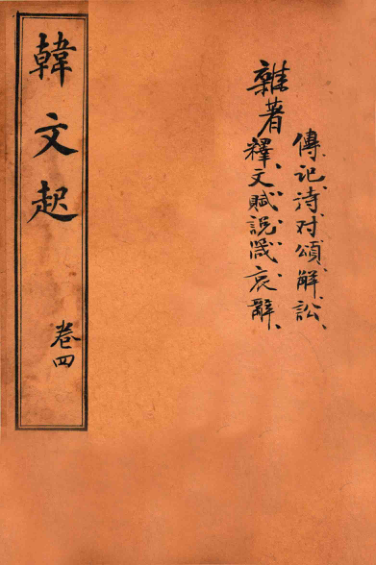 雜著
傳、記、詩、对、頌、解、訟、
釋、文、賦、說、箴、哀辭、
韓文起
卷四